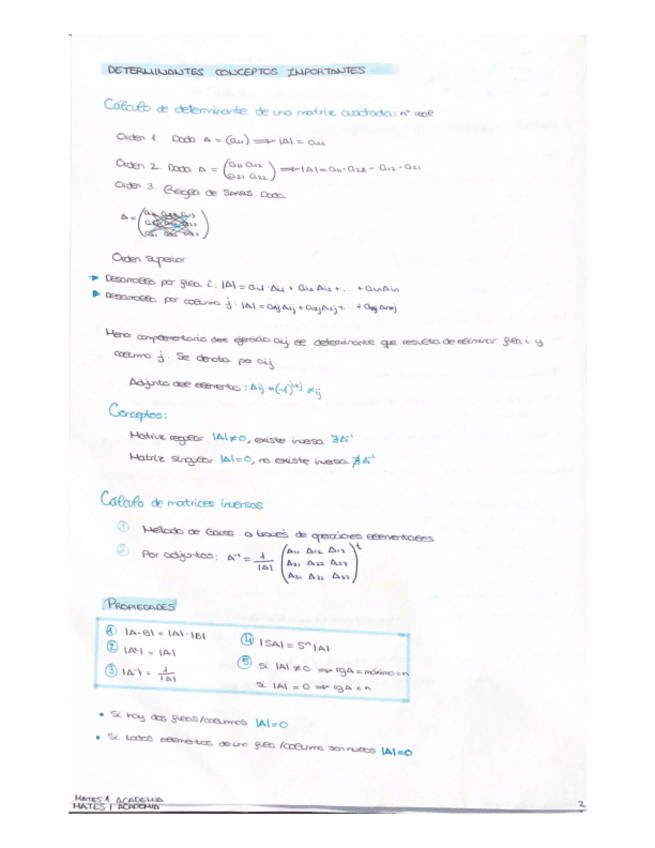 DETERMINANTES CONCEPTOS IMPORTANTES
Cálculo de determinante de una matriz cuadrada: nº real
Orden 1. Dada A = (a₁₁) ⟹ |A| = a₁₁
Orden 2. Dada A = (a₁₁ a₁₂ / a₂₁ a₂₂) ⟹ |A| = a₁₁·a₂₂ - a₁₂·a₂₁
Orden 3. Regla de SARRUS. Dada
A = (a₁₁ a₁₂ a₁₃ / a₂₁ a₂₂ a₂₃ / a₃₁ a₃₂ a₃₃)
Orden superior
Desarrollo por fila i: |A| = ai1·Ai1 + ai2 Ai2 + ... + ain Ain
Desarrollo por columna j: |A| = a1j A1j + a2j A2j + ... + anj Anj
Menor complementario del aij el determinante que resulta de eliminar fila i y
columna j. Se denota por αij
Adjunto del elemento: Aij = (-1)^i+j αij
Conceptos:
Matriz regular |A|≠0, existe inversa ∃A⁻¹
Matriz singular |A|=0, no existe inversa ∄A⁻¹
Cálculo de matrices inversas
① Método de Gauss: a través de operaciones elementales
② Por adjuntos: A⁻¹ = 1/|A| (A₁₁ A₁₂ A₁₃ / A₂₁ A₂₂ A₂₃ / A₃₁ A₃₂ A₃₃)ᵗ
PROPIEDADES
① |A·B| = |A|·|B|
② |Aᵗ| = |A|
③ |A⁻¹| = 1/|A|
④ |SA| = Sⁿ|A|
⑤ Si |A| ≠ 0 ⟹ rgA = máximo = n
Si |A| = 0 ⟹ rgA < n
• Si hay dos filas/columnas |A|=0
• Si todos elementos de una fila/columna son nulos |A|=0
MATES 1 ACADEMIA
MATES 1 ACADEMIA
2